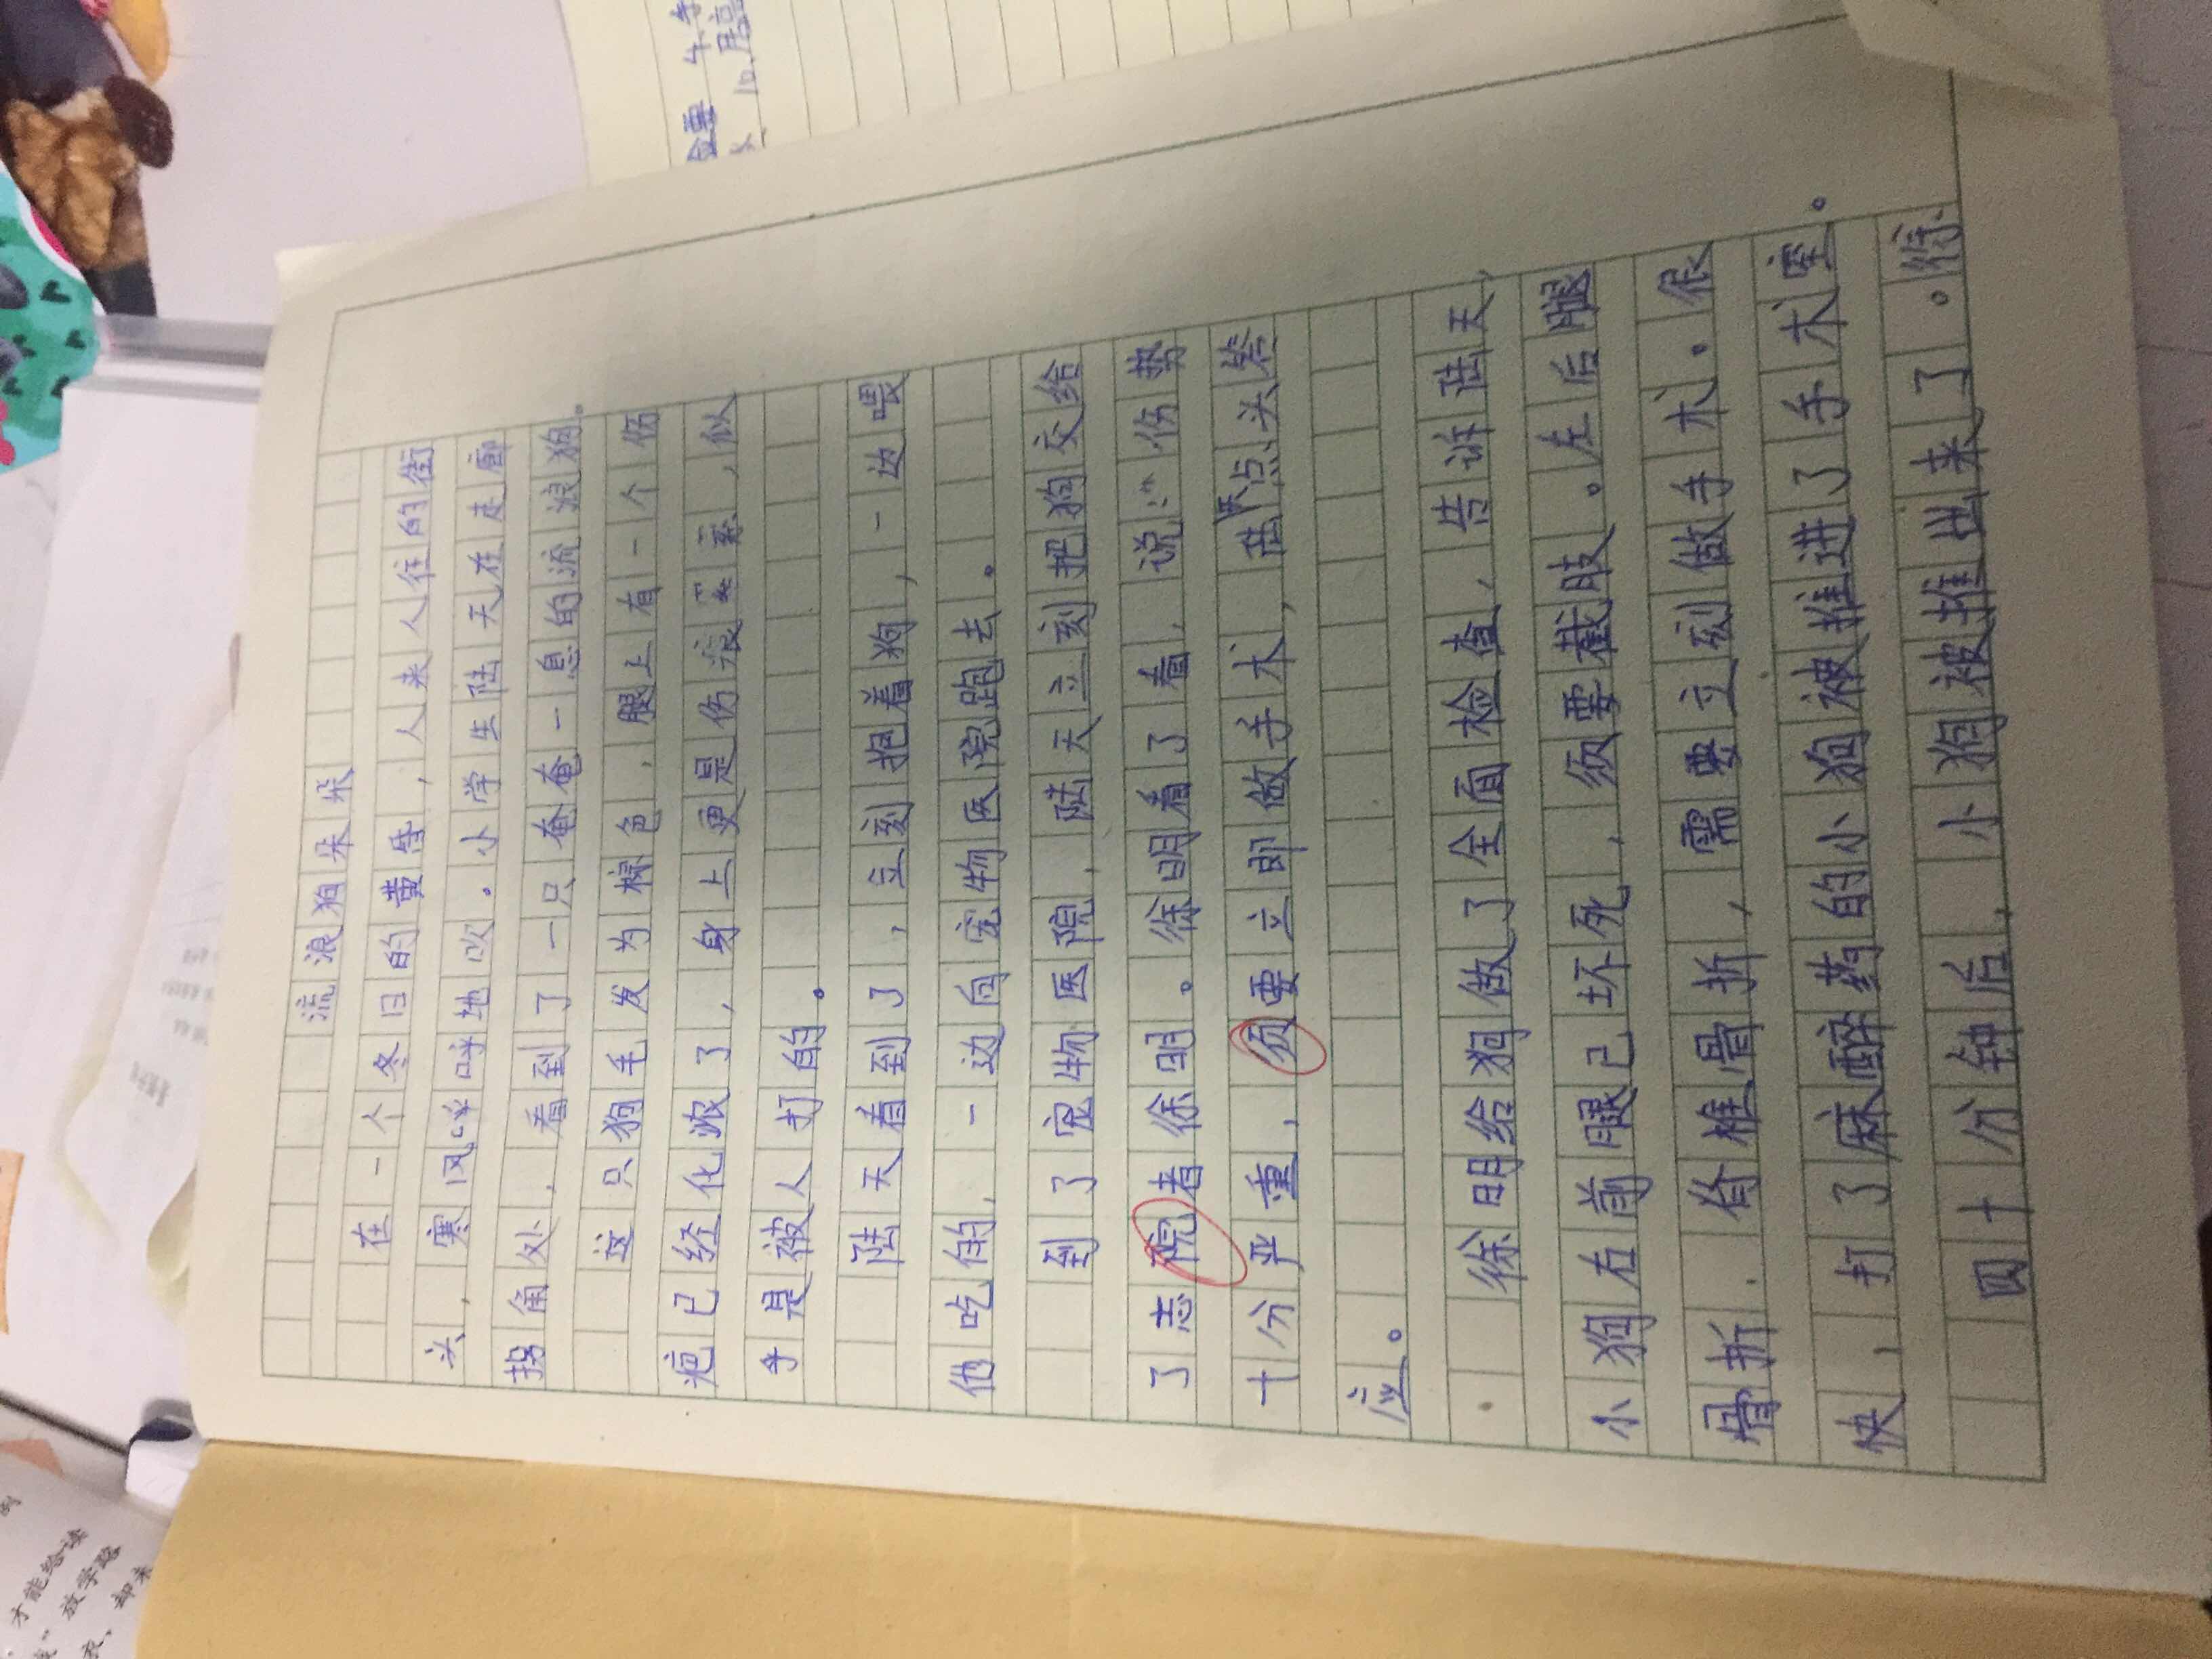 流浪狗朵朵
在一个冬日的黄昏，人来人往的街
头，寒风呼呼地吹。小学生陆天在走廊
拐角处，看到了一只奄奄一息的流浪狗。
这只狗毛发为棕色，腿上有一个伤
疤已经化浓了，身上更是伤痕累累，似
乎是被人打的。
陆天看到了，立刻抱着狗，一边喂
他吃的，一边向宠物医院跑去。
到了宠物医院，陆天立刻把狗交给
了志院者徐明。徐明看了看，说：“伤势
十分严重，须要立即做手术，陆天点头答
应。
徐明给狗做了全面检查，告诉陆天，
小狗右前腿已坏死，须要截肢。左后腿
骨折.脊椎骨折，需要立刻做手术。很
快，打了麻醉药的小狗被推进了手术室。
四十分钟后，小狗被推出来了。徐
金重 4.
10.
才能给读
放学路
却未